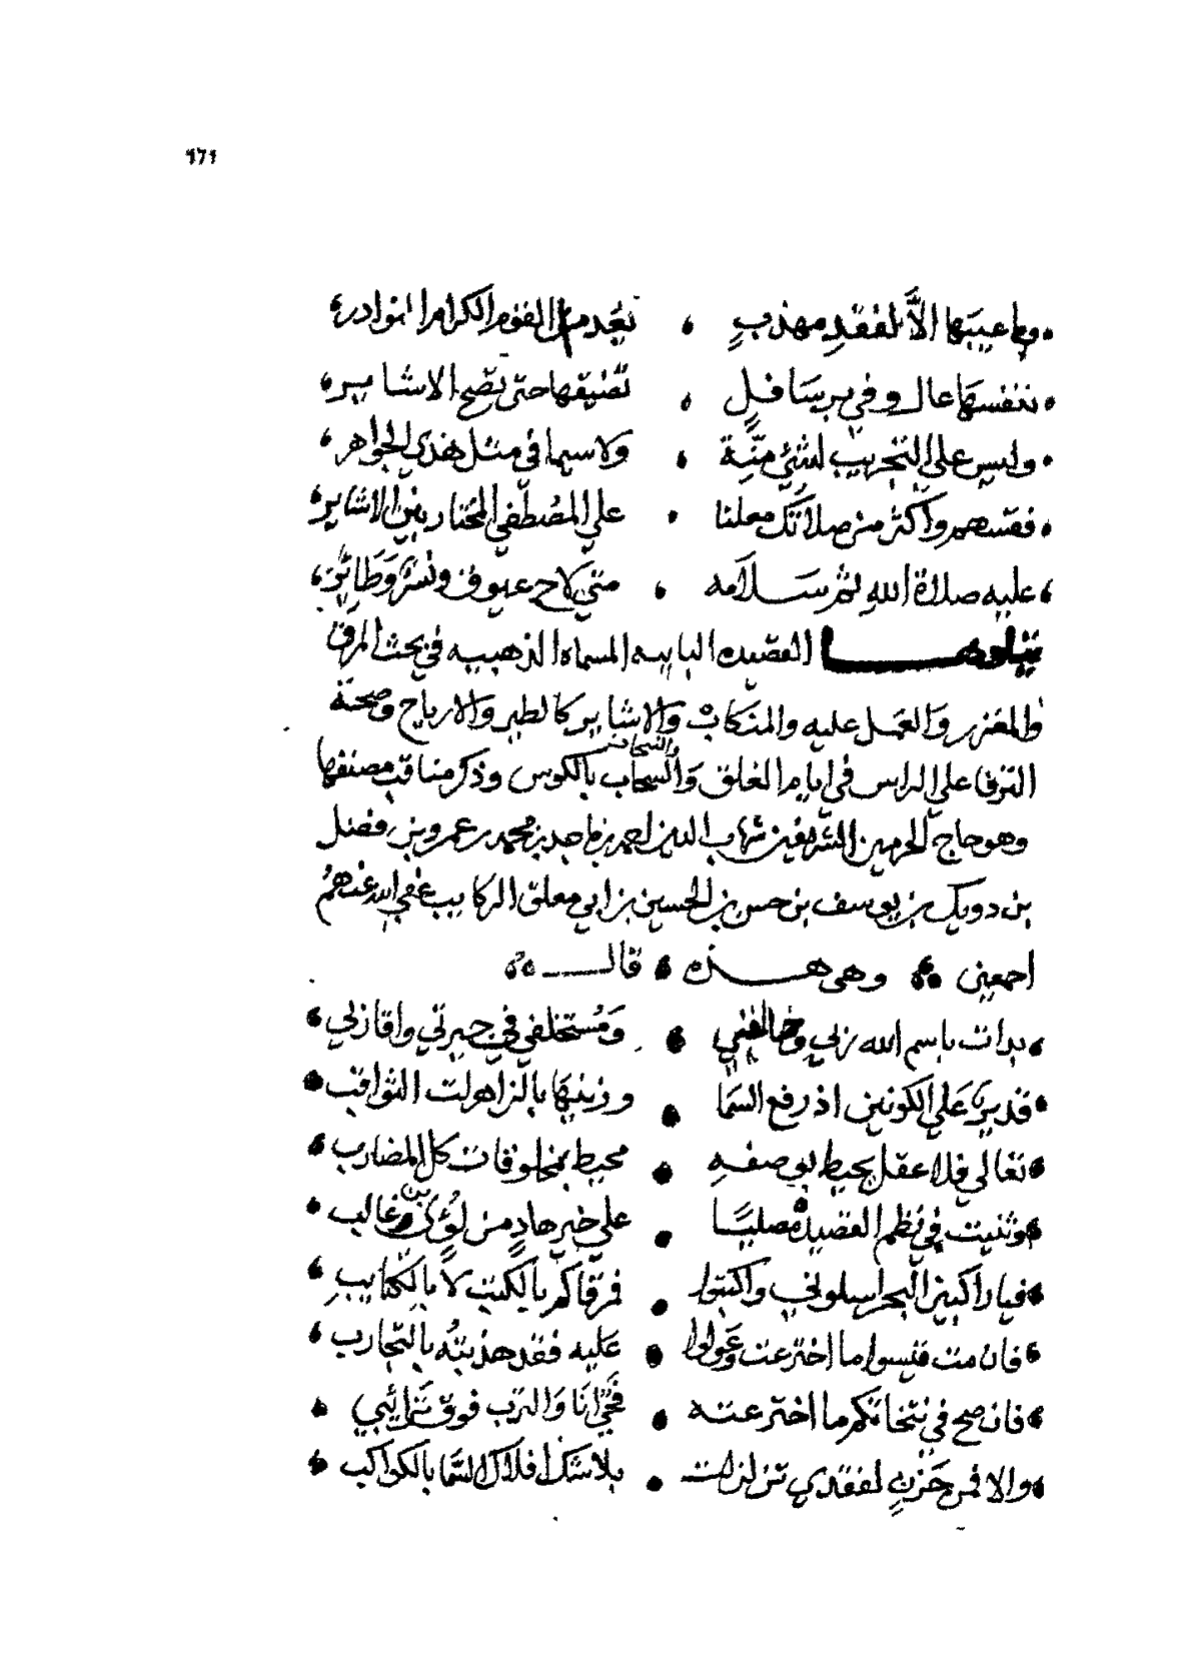 171
وما عيبها الا لفقد مهذب ، بعدم من القوم الكرام النوادر
نفستها عال وفي بر سافل ، تضيقها حتى تصح الاشاير
وليس على التجريب لشئ منة ، ولا سيما في مثل هذي الجواهر
فقسهم واكثر من صلاتك معلنا ، على المصطفى المختار بين الاشاير
عليه صلاة الله ثم سلامه ، متى لاح عيوق ونسر وطائر
يتلوها القصيده البائيه المسماه الذهبيه في بحث المرق
والمغزر والعمل عليه والمنكاب والاشاير كالطير والارياح وصحة
الترفا على الراس في ايام الغلق والسحاب بالكوس وذكر مناقب مصنفها
وهو حاج الحرمين الشريفين شهاب الدين احمد بن ماجد بن محمد بن عمرو بن فضل
بن دويك بن يوسف بن حسن بن الحسين بن ابي معلق الركايب عفى الله عنهم
اجمعين وهى هذه قال
بدات باسم الله ربي وخالقي ومستخلفي في جيرتي واقاربي
قدير على الكونين اذ رفع السما وزينها بالزاهرات الثواقب
تعالى فلا عقل يحيط بوصفه محيط بمخلوقات كل المضارب
وثنيت في نظم القصيد مصليا على خير هاد من لؤي بن غالب
فيا راكبين البحر اسلوني واكتبوا فرقاكم بالكتب لا بالكتايب
فان مت قيسوا ما اخترعت وعولوا عليه فقد هذبته بالتجارب
فان صح في نتخاتكم ما اخترعته فخري انا والترب فوق ترائبي
والا فمن حزن لفقدي تزلزلت بلا شك افلاك السما بالكواكب